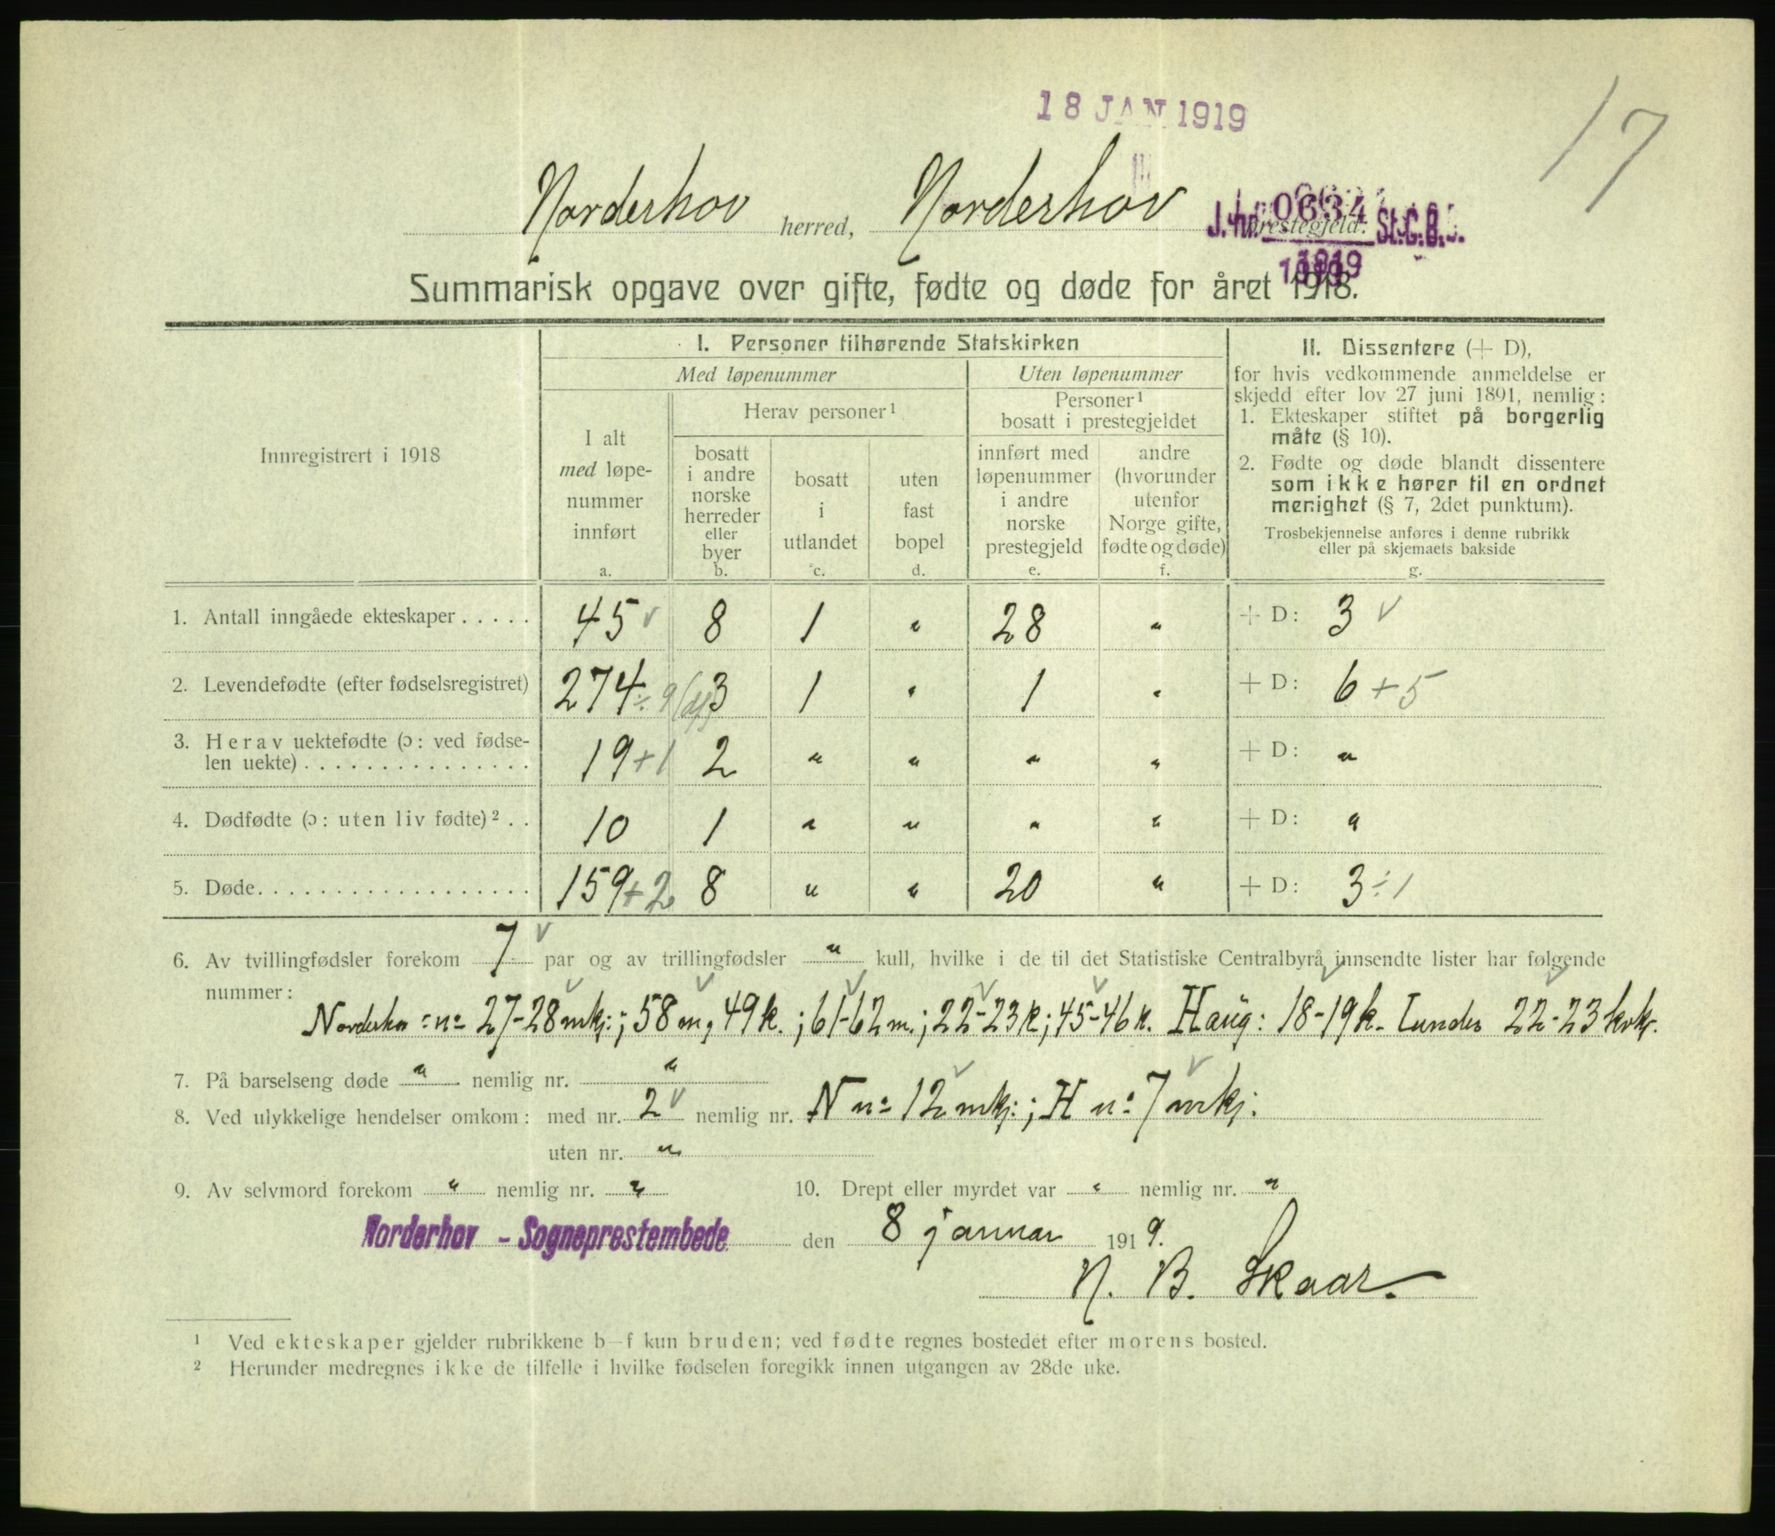 18 JAN 1919
17
Norderhov herred, Norderhov prestegjeld.
J. nr. 0634 St.C.B.
1919
Summarisk opgave over gifte, fødte og døde for året 1918.
Innregistrert i 1918
I. Personer tilhørende Statskirken
Med løpenummer
Uten løpenummer
I alt
med løpe-
nummer
innført
a.
Herav personer¹
bosatt
i andre
norske
herreder
eller
byer
b.
bosatt
i
utlandet
c.
uten
fast
bopel
d.
Personer¹
bosatt i prestegjeldet
innført med
løpenummer
i andre
norske
prestegjeld
e.
andre
(hvorunder
utenfor
Norge gifte,
fødte og døde)
f.
II. Dissentere (+ D),
for hvis vedkommende anmeldelse er
skjedd efter lov 27 juni 1891, nemlig:
1. Ekteskaper stiftet på borgerlig
måte (§ 10).
2. Fødte og døde blandt dissentere
som ikke hører til en ordnet
menighet (§ 7, 2det punktum).
Trosbekjennelse anføres i denne rubrikk
eller på skjemaets bakside
g.
1. Antall inngåede ekteskaper . . . . . 45 √ 8 1 " 28 " + D: 3 √
2. Levendefødte (efter fødselsregistret) 274 ÷ 9 (df) 3 1 " 1 " + D: 6 + 5
3. Herav uektefødte (ɔ: ved fødse-
len uekte) . . . . . . . . . . . . . . . 19 + 1 2 " " " " + D: "
4. Dødfødte (ɔ: uten liv fødte)² . . 10 1 " " " " + D: "
5. Døde. . . . . . . . . . . . . . . . . . 159 + 2 8 " " 20 " + D: 3 ÷ 1
6. Av tvillingfødsler forekom 7 √ par og av trillingfødsler " kull, hvilke i de til det Statistiske Centralbyrå innsendte lister har følgende
nummer:
Norderhov: no 27-28 mkj.; 58 m, 49 k.; 61-62 m.; 22-23 k; 45-46 k. Haug: 18-19 k. Lunder 22-23 kvkj.
7. På barselseng døde " nemlig nr. "
8. Ved ulykkelige hendelser omkom: med nr. 2 √ nemlig nr. N no 12 mkj.; H no 7 mkj.
uten nr. "
9. Av selvmord forekom " nemlig nr. " 10. Drept eller myrdet var " nemlig nr. "
Norderhov - Sogneprestembede den 8 januar 1919.
N. B. Skaar.
¹ Ved ekteskaper gjelder rubrikkene b–f kun bruden; ved fødte regnes bostedet efter morens bosted.
² Herunder medregnes ikke de tilfelle i hvilke fødselen foregikk innen utgangen av 28de uke.